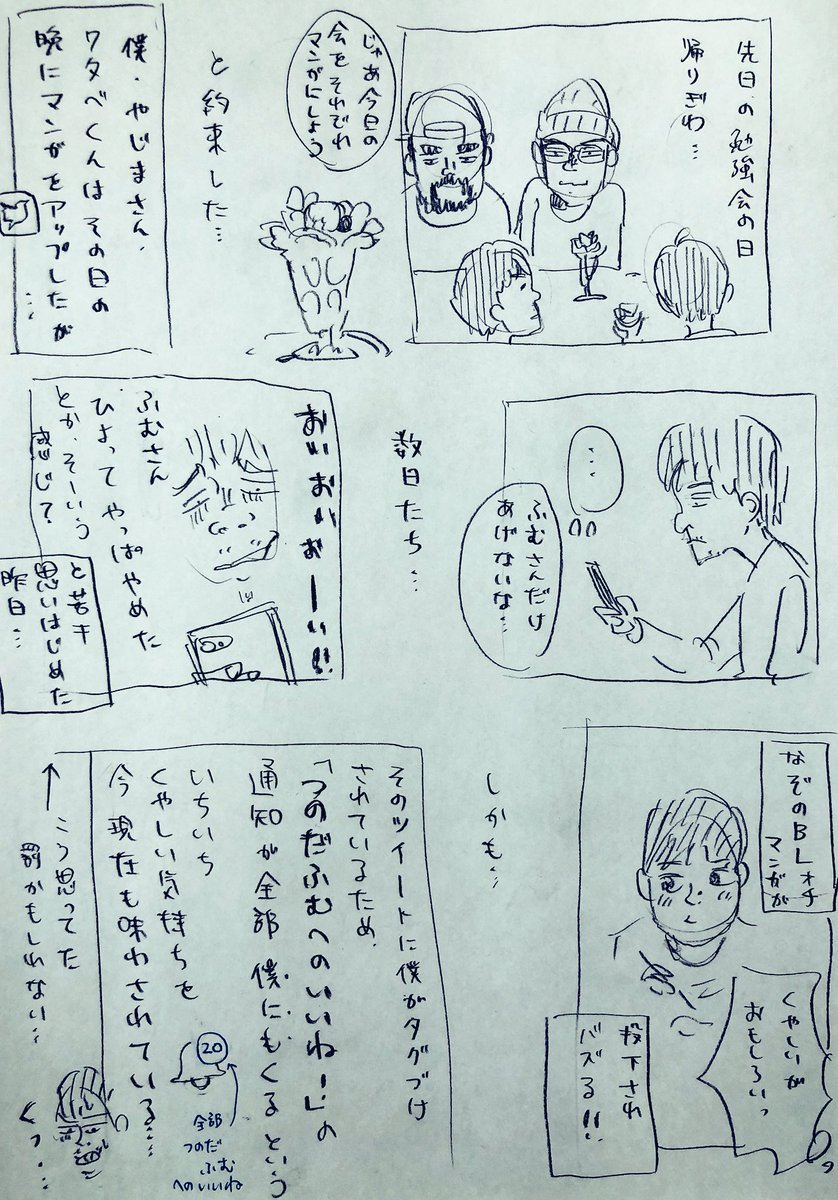 先日の勉強会の日
帰りぎわ…
じゃあ今日の
会をそれぞれ
マンガにしよう
と約束した…
僕・やじまさん、
ワタベくんはその日の
晩にマンガをアップしたが
…
…
ふむさんだけ
あげないな…
数日たち…
おいおいおーい!!
ふむさん
ひよってやっぱやめた
とか、そーいう
感じ?
と若干
思いはじめた
昨日…
なぞのBLオチ
マンガが
くやしいが
おもしろいっ
投下され
バズる!!
しかも…
そのツイートに僕がタグづけ
されているため、
「つのだふむへのいいねー!」の
通知が全部僕にもくるという
いちいち
くやしい気持ちを
今現在も味わされている…
20
全部
つのだ
ふむ
へのいいね
← こう思ってた
罰かもしれない…
くっ…